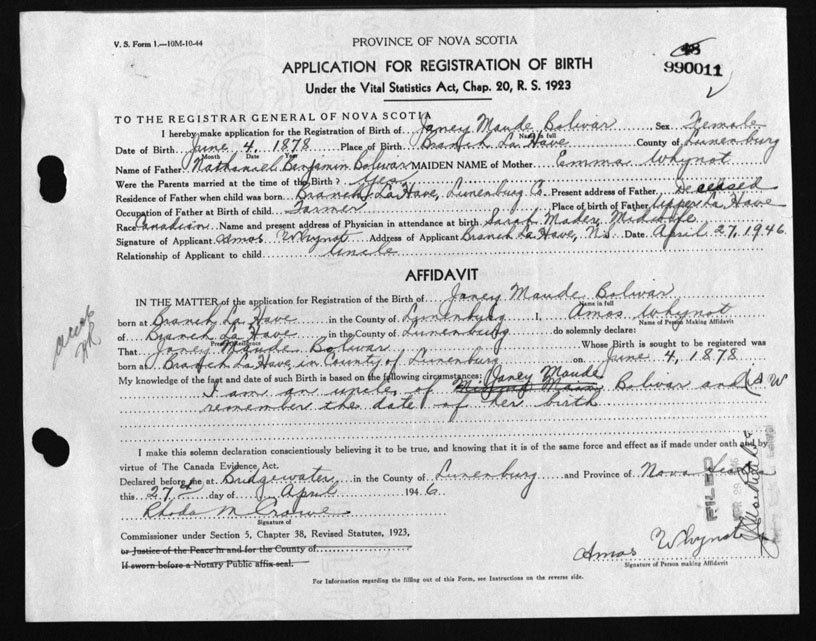 V. S. Form 1.—10M-10-44
PROVINCE OF NOVA SCOTIA
48
990011
APPLICATION FOR REGISTRATION OF BIRTH
Under the Vital Statistics Act, Chap. 20, R. S. 1923
TO THE REGISTRAR GENERAL OF NOVA SCOTIA
I hereby make application for the Registration of Birth of Janey Maude Bolivar Sex Female
Name in full
Date of Birth June 4, 1878 Place of Birth Branch La Have County of Lunenburg
Month Date Year
Name of Father Nathaniel Benjamin Bolivar MAIDEN NAME of Mother Emma Whynot
Were the Parents married at the time of the Birth? Yes
Residence of Father when child was born Branch La Have, Lunenburg Co. Present address of Father Deceased
Occupation of Father at Birth of child Farmer Place of birth of Father Upper La Have
Race Canadian Name and present address of Physician in attendance at birth Sarah Mader, Midwife
Signature of Applicant Amos Whynot Address of Applicant Branch La Have, N.S. Date April 27, 1946
Relationship of Applicant to child Uncle
AFFIDAVIT
IN THE MATTER of the application for Registration of the Birth of Janey Maude Bolivar
Name in full
born at Branch La Have in the County of Lunenburg I, Amos Whynot
Name of Person Making Affidavit
of Branch La Have in the County of Lunenburg do solemnly declare:
Present Residence
That Janey Maude Bolivar Whose Birth is sought to be registered was
born at Branch La Have, in County of Lunenburg on June 4, 1878
My knowledge of the fact and date of such Birth is based on the following circumstances: Janey Maude
I am an uncle of Bolivar and A W
remember the date of her birth
I make this solemn declaration conscientiously believing it to be true, and knowing that it is of the same force and effect as if made under oath and by
virtue of The Canada Evidence Act.
Declared before me at Bridgewater in the County of Lunenburg and Province of Nova Scotia
this 27th day of April 1946.
Rhoda M Crowe
Signature of
Commissioner under Section 5, Chapter 38, Revised Statutes, 1923,
or Justice of the Peace in and for the County of
If sworn before a Notary Public affix seal.
FILED
Amos Whynot
Signature of Person making Affidavit
For Information regarding the filling out of this Form, see Instructions on the reverse side.